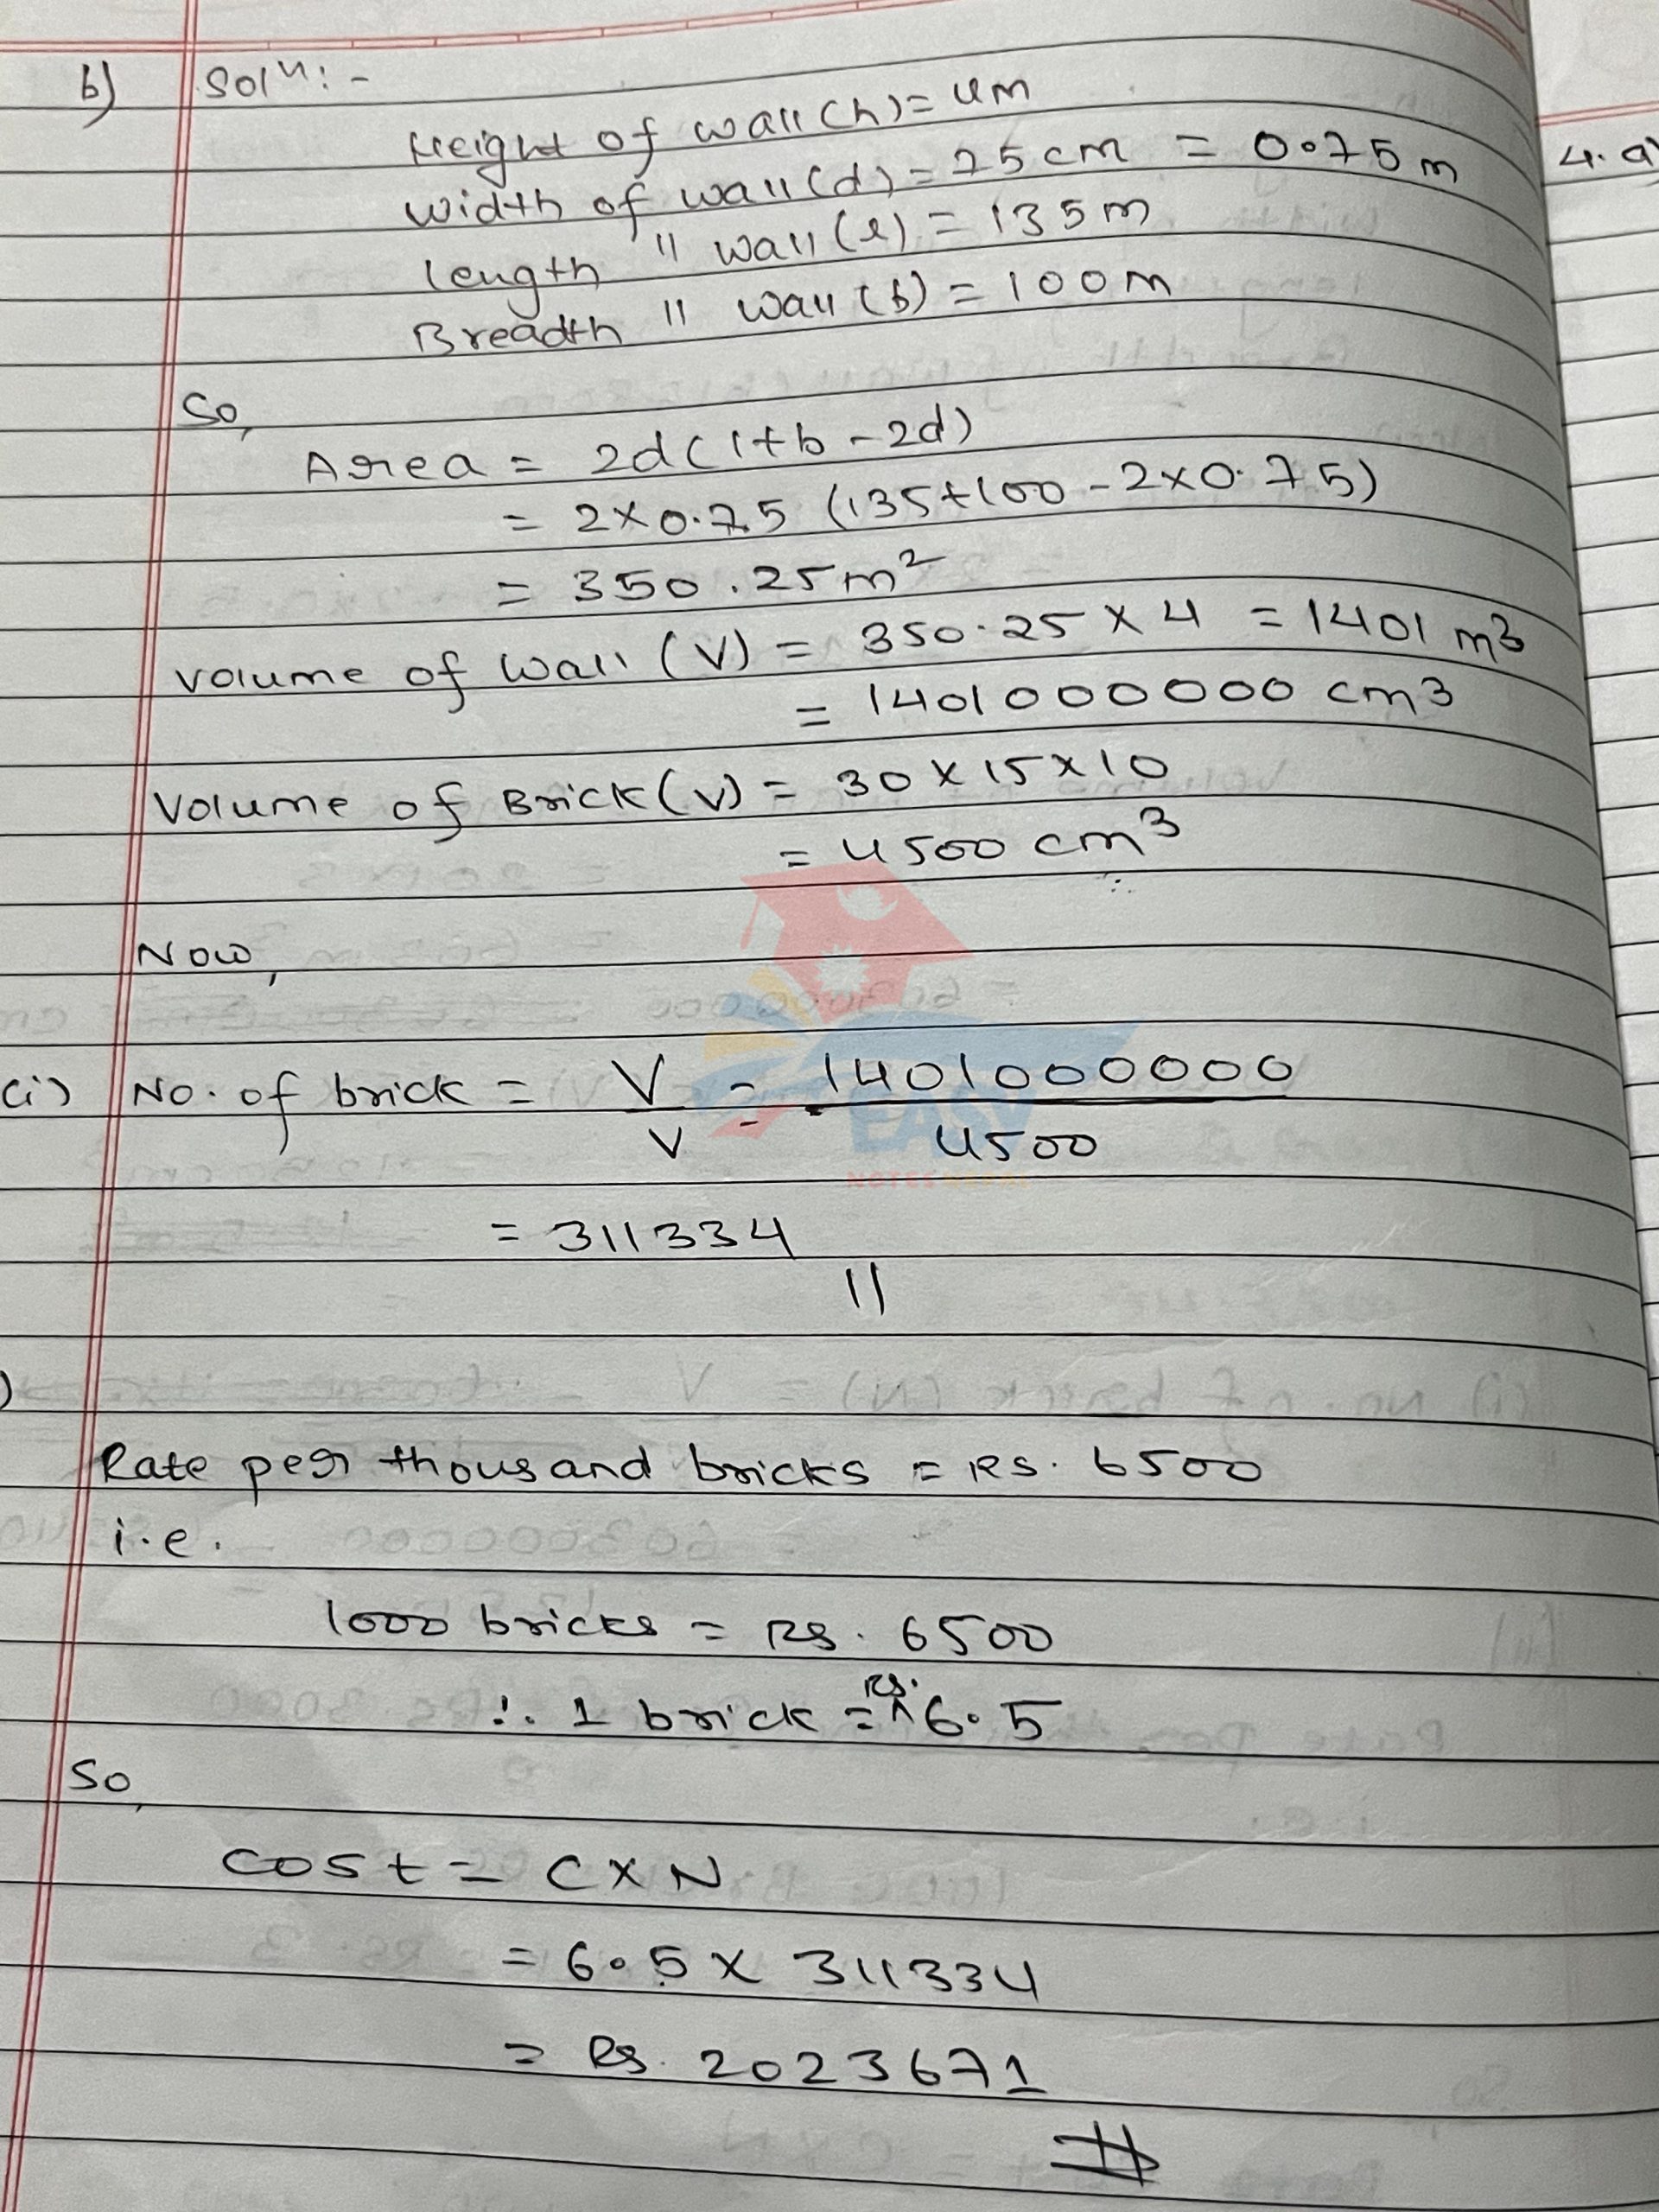 b) Solⁿ:-
Height of wall (h) = 4m
width of wall (d) = 75 cm = 0.75 m
4. a)
length " wall (l) = 135 m
Breadth " wall (b) = 100 m
So,
Area = 2d(l+b-2d)
= 2×0.75 (135+100-2×0.75)
= 350.25 m²
volume of wall (V) = 350.25 × 4 = 1401 m3
= 1401000000 cm3
Volume of Brick (v) = 30×15×10
= 4500 cm3
Now,
(i) No. of brick = V/v = 1401000000/4500
= 311334
)
Rate per thousand bricks = Rs. 6500
i.e.
1000 bricks = Rs. 6500
∴ 1 brick = Rs. 6.5
So,
cost = C×N
= 6.5 × 311334
= Rs. 2023671
EASY
NOTES NEPAL